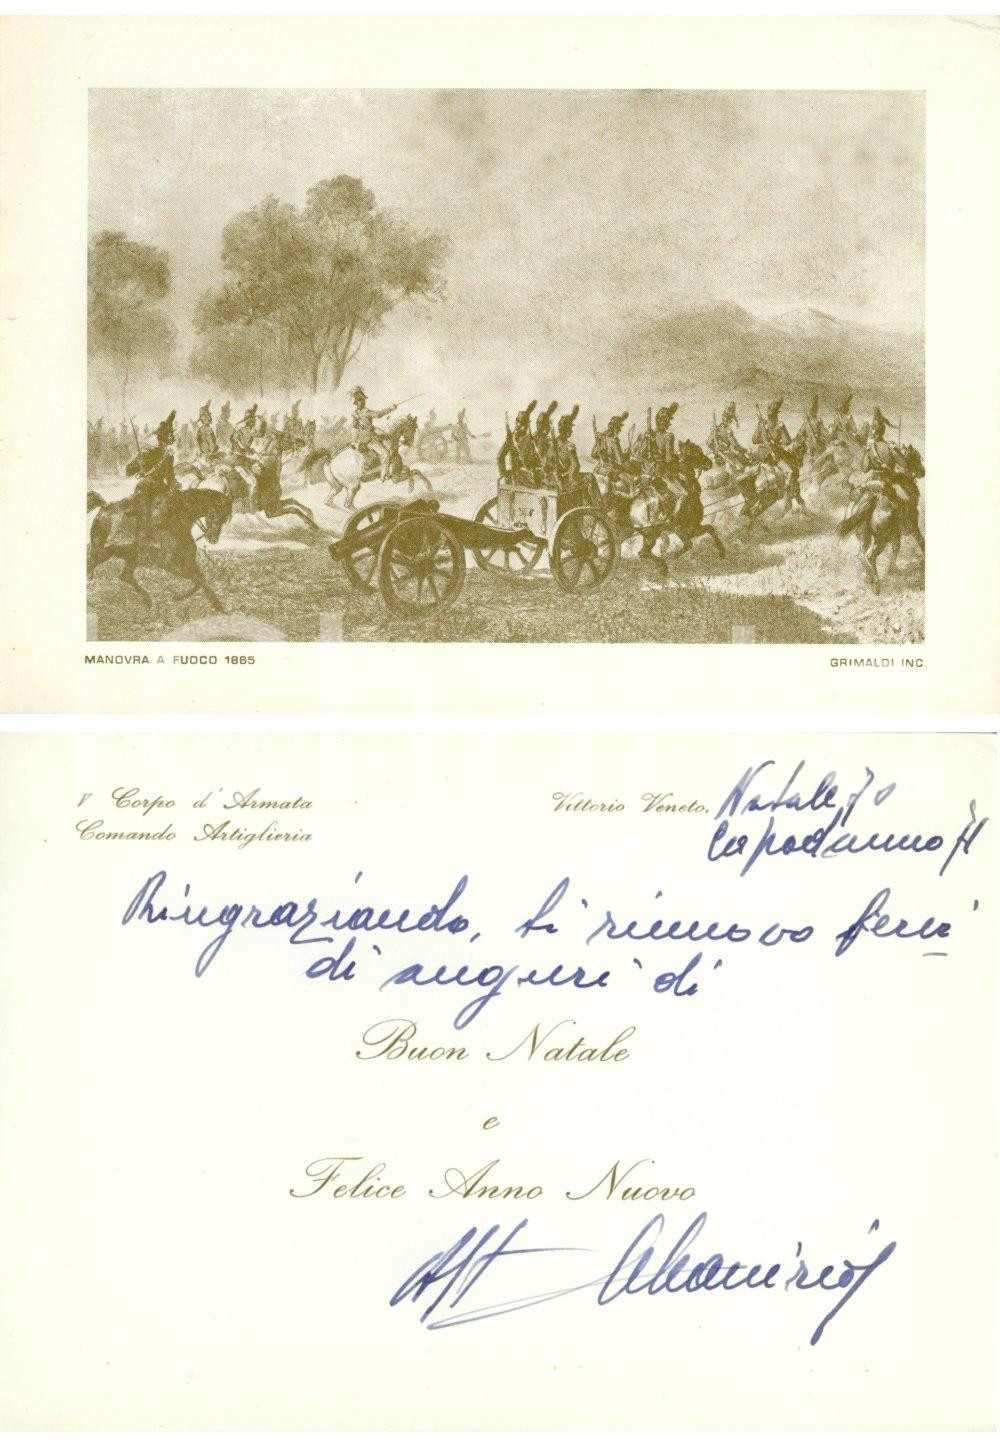 MANOVRA A FUOCO 1865
GRIMALDI INC.
V Corpo d'Armata
Comando Artiglieria
Vittorio Veneto, Natale 70
Capodanno 71
Ringraziando, ti rinnovo
di auguri di
Buon Natale
e
Felice Anno Nuovo